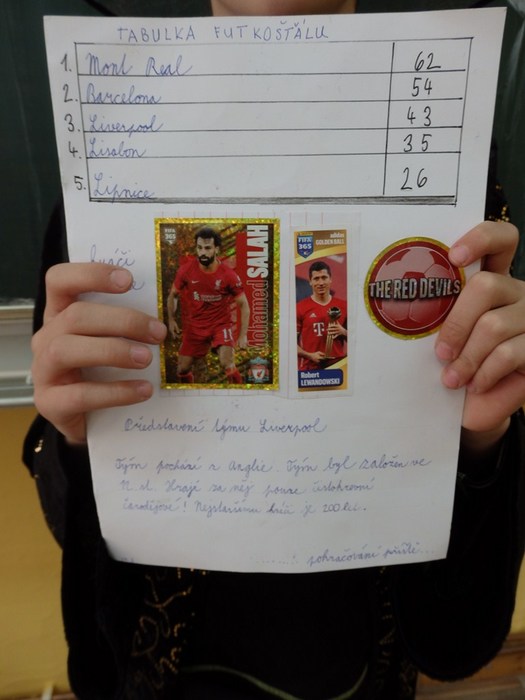 TABULKA FUTKOŠŤÁLU
1. Mont Real 62
2. Barcelona 54
3. Liverpool 43
4. Lisabon 35
5. Lipnice 26
FIFA 365
Mohamed SALAH
11
LIVERPOOL
FIFA 365
adidas
GOLDEN BALL
T
Robert
LEWANDOWSKI
THE RED DEVILS
Představení týmu Liverpool
Tým pochází z Anglie. Tým byl založen ve
st. Hrají za něj pouze čistokrevní
čarodějové! Nejstaršímu hráči je 200 let.
pokračování příště...